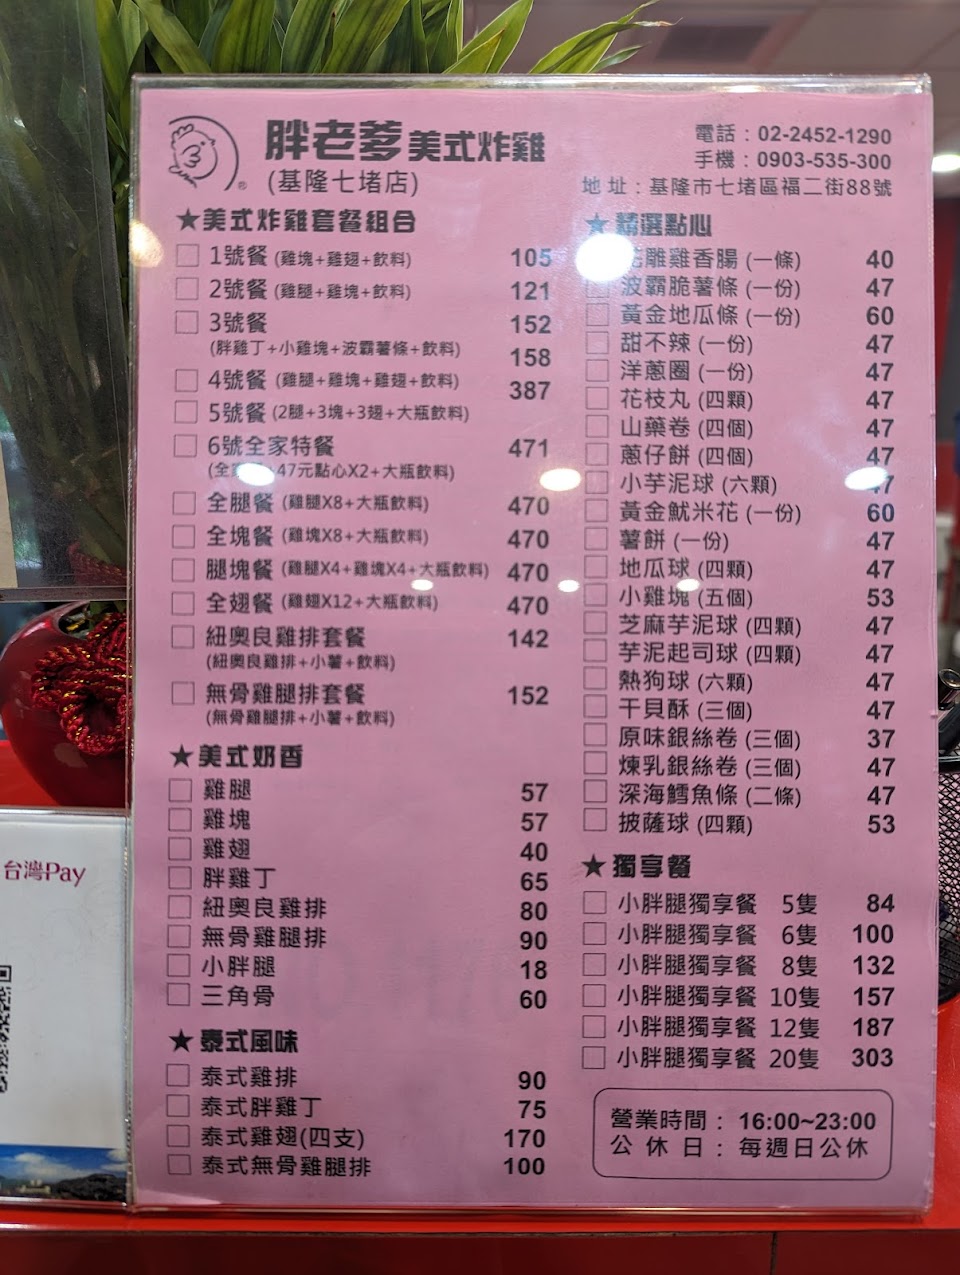 胖老爹美式炸雞
(基隆七堵店)
電話：02-2452-1290
手機：0903-535-300
地址：基隆市七堵區福二街88號
★美式炸雞套餐組合
1號餐 (雞塊+雞翅+飲料) 105
2號餐 (雞腿+雞塊+飲料) 121
3號餐 152
(胖雞丁+小雞塊+波霸薯條+飲料)
158
4號餐 (雞腿+雞塊+雞翅+飲料)
387
5號餐 (2腿+3塊+3翅+大瓶飲料)
6號全家特餐 471
47元點心X2+大瓶飲料)
全腿餐 (雞腿X8+大瓶飲料) 470
全塊餐 (雞塊X8+大瓶飲料) 470
腿塊餐 (雞腿X4+雞塊X4+大瓶飲料) 470
全翅餐 (雞翅X12+大瓶飲料) 470
紐奧良雞排套餐 142
(紐奧良雞排+小薯+飲料)
無骨雞腿排套餐 152
(無骨雞腿排+小薯+飲料)
★美式奶香
雞腿 57
雞塊 57
雞翅 40
胖雞丁 65
紐奧良雞排 80
無骨雞腿排 90
小胖腿 18
三角骨 60
★泰式風味
泰式雞排 90
泰式胖雞丁 75
泰式雞翅(四支) 170
泰式無骨雞腿排 100
★精選點心
雕雞香腸 (一條) 40
波霸脆薯條 (一份) 47
黃金地瓜條 (一份) 60
甜不辣 (一份) 47
洋蔥圈 (一份) 47
花枝丸 (四顆) 47
山藥卷 (四個) 47
蔥仔餅 (四個) 47
小芋泥球 (六顆) 47
黃金魷米花 (一份) 60
薯餅 (一份) 47
地瓜球 (四顆) 47
小雞塊 (五個) 53
芝麻芋泥球 (四顆) 47
芋泥起司球 (四顆) 47
熱狗球 (六顆) 47
干貝酥 (三個) 47
原味銀絲卷 (三個) 37
煉乳銀絲卷 (三個) 47
深海鱈魚條 (二條) 47
披薩球 (四顆) 53
★獨享餐
小胖腿獨享餐 5隻 84
小胖腿獨享餐 6隻 100
小胖腿獨享餐 8隻 132
小胖腿獨享餐 10隻 157
小胖腿獨享餐 12隻 187
小胖腿獨享餐 20隻 303
營業時間：16:00~23:00
公休日：每週日公休
台灣Pay